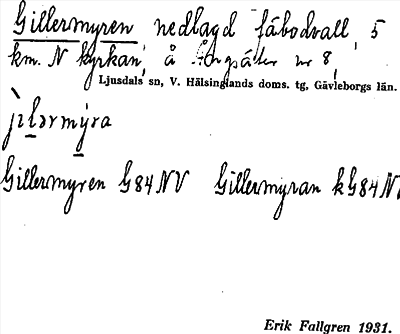 Gillermyren nedlagd fäbodvall, 5
km. N kyrkan, å nr 8,
Ljusdals sn, V. Hälsinglands doms. tg, Gävleborgs län.
Gillermyren G84 NV Gillermyran k G84 N
Erik Fallgren 1931.